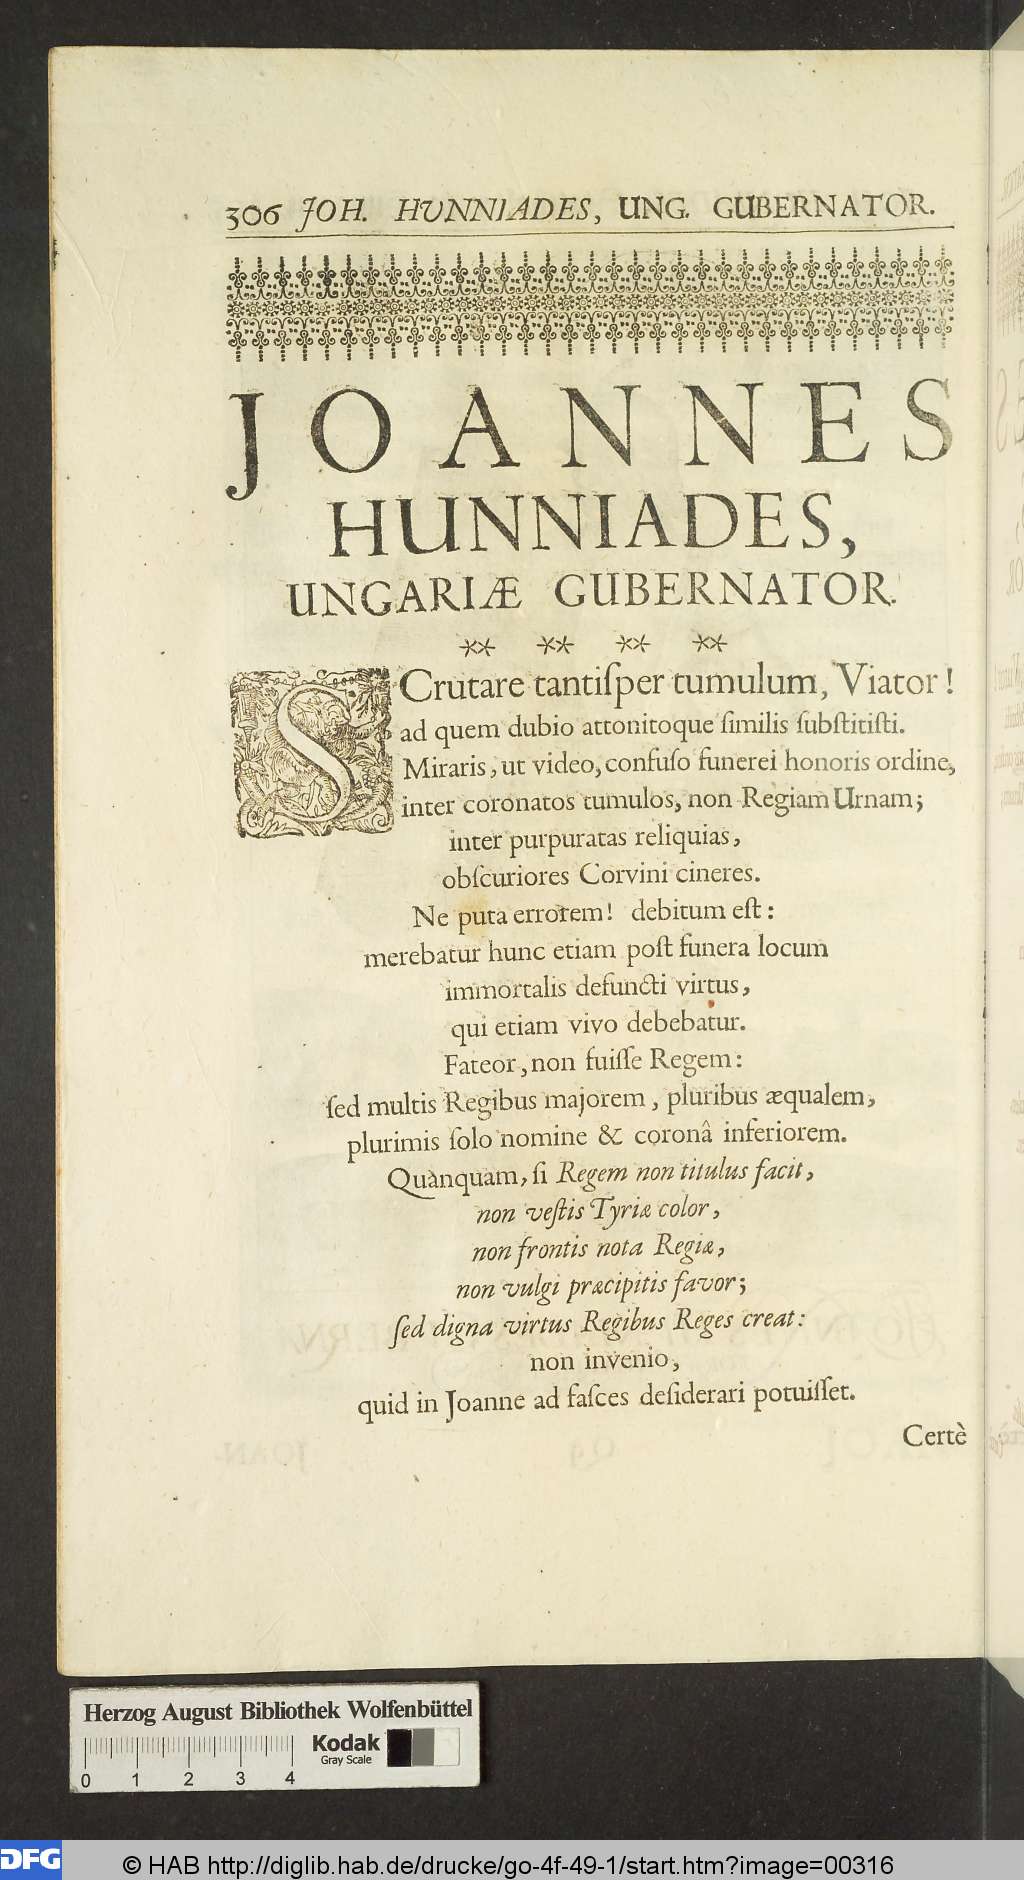 306 JOH. HUNNIADES, UNG. GUBERNATOR.
JOANNES
HUNNIADES,
UNGARIÆ GUBERNATOR.
** ** ** **
SCrutare tantiſper tumulum, Viator!
ad quem dubio attonitoque ſimilis ſubſtitiſti.
Miraris, ut video, confuſo funerei honoris ordine,
inter coronatos tumulos, non Regiam Urnam;
inter purpuratas reliquias,
obſcuriores Corvini cineres.
Ne puta errorem! debitum eſt:
merebatur hunc etiam poſt funera locum
immortalis defuncti virtus,
qui etiam vivo debebatur.
Fateor, non fuiſſe Regem:
ſed multis Regibus majorem, pluribus æqualem,
plurimis ſolo nomine & coronâ inferiorem.
Quànquam, ſi Regem non titulus facit,
non veſtis Tyriæ color,
non frontis nota Regiæ,
non vulgi præcipitis favor;
ſed digna virtus Regibus Reges creat:
non invenio,
quid in Joanne ad faſces deſiderari potuiſſet.
Certè
Herzog August Bibliothek Wolfenbüttel
Kodak
Gray Scale
0 1 2 3 4
DFG
© HAB http://diglib.hab.de/drucke/go-4f-49-1/start.htm?image=00316